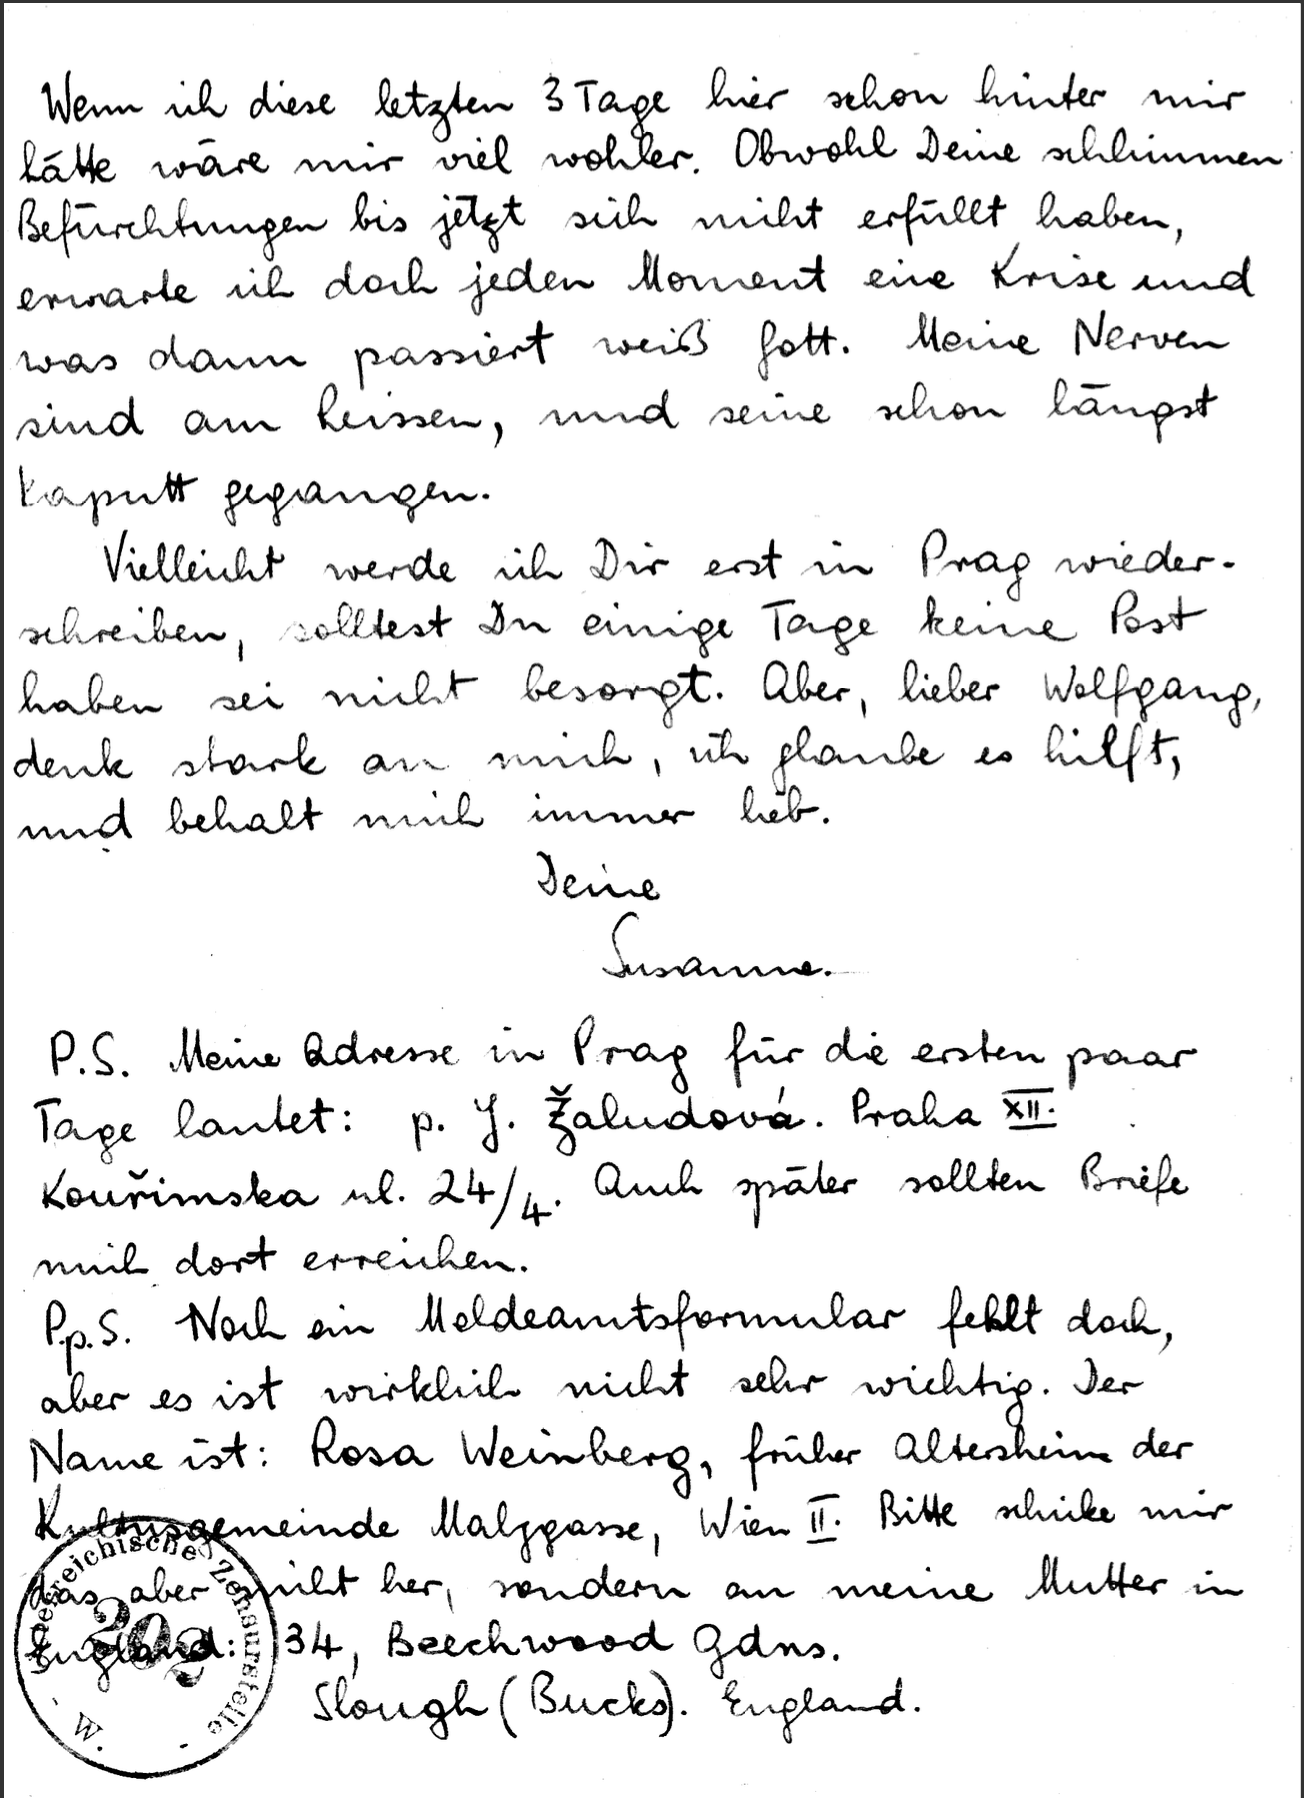 Wenn ich diese letzten 3 Tage hier schon hinter mir
hätte wäre mir viel wohler. Obwohl Deine schlimmen
Befürchtungen bis jetzt sich nicht erfüllt haben,
erwarte ich doch jeden Moment eine Krise und
was dann passiert weiß Gott. Meine Nerven
sind am Reissen, und seine schon längst
kaputt gegangen.
Vielleicht werde ich Dir erst in Prag wieder-
schreiben, solltest Du einige Tage keine Post
haben sei nicht besorgt. Aber, lieber Wolfgang,
denk stark an mich, ich glaube es hilft,
und behalt mich immer lieb.
Deine
Susanne.
P.S. Meine Adresse in Prag für die ersten paar
Tage lautet: p. J. Žaludová. Praha XII.
Kouřimska ul. 24/4. Auch später sollten Briefe
mich dort erreichen.
P.p.S. Noch ein Meldeamtsformular fehlt doch,
aber es ist wirklich nicht sehr wichtig. Der
Name ist: Rosa Weinberg, früher Altersheim der
Kultusgemeinde Malzgasse, Wien II. Bitte schicke mir
das aber nicht her, sondern an meine Mutter in
England: 34, Beechwood Gdns.
Slough (Bucks). England.
Oesterreichische Zensurstelle
202
- W. -